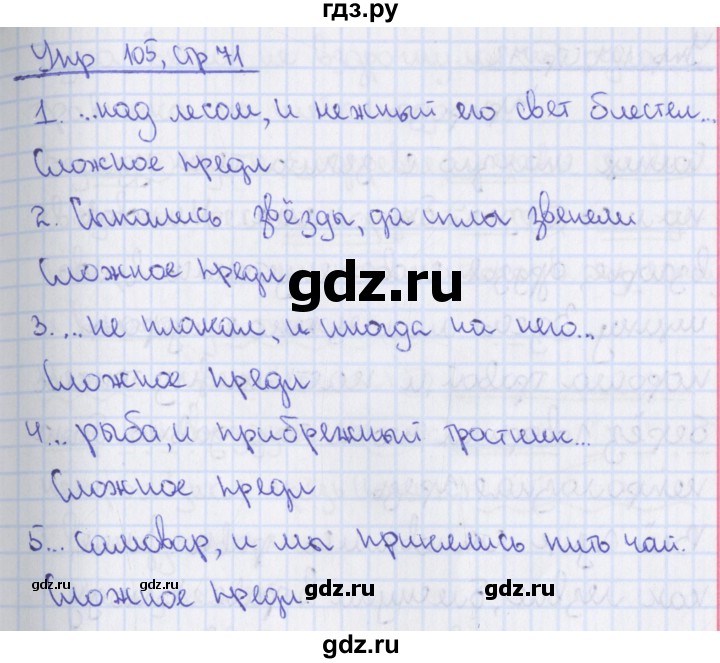 гдз.ру
Упр 105, стр 71
1. ...над лесом, и нежный его свет блестел...
Сложное предл
2. Сыпались звёзды, да иглы звенели
Сложное предл
gdz.ru
3. ... не плакал, и иногда на него...
Сложное предл
4... рыба, и прибрежный тростник...
Сложное предл
5... самовар, и мы принялись пить чай.
gdz.ru gdz.ru
Сложное предл.
gdz.ru